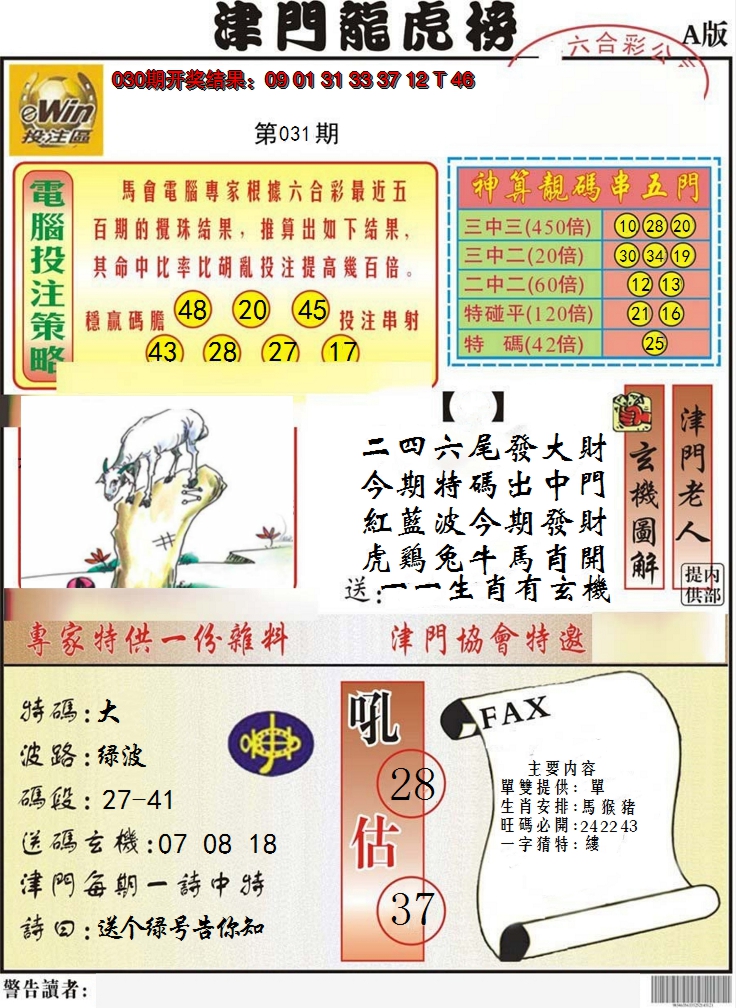 津門龍虎榜
A版
六合彩公
030期开奖结果：09 01 31 33 37 12 T 46
eWin
投注區
第031期
電腦投注策略
馬會電腦專家根據六合彩最近五
百期的攪珠结果，推算出如下结果，
其命中比率比胡亂投注提高幾百倍。
穩贏碼膽 48 20 45 投注串射
43 28 27 17
神算靚码串五門
三中三(450倍) 10 28 20
三中二(20倍) 30 34 19
二中二(60倍) 12 13
特碰平(120倍) 21 16
特 碼(42倍) 25
【 】
二四六尾發大財
今期特碼出中門
紅藍波今期發財
虎鷄兔牛馬肖開
送：一一生肖有玄機
玄機圖解
津門老人
内部提供
專家特供一份雜料
津門協會特邀
特碼：大
波路：绿波
碼段：27-41
送碼玄機：07 08 18
津門每期一詩中特
詩曰：送个绿号告你知
吼
28
估
37
FAX
主要内容
單雙提供：單
生肖安排：馬猴豬
旺碼必開：242243
一字猜特：縷
警告讀者：